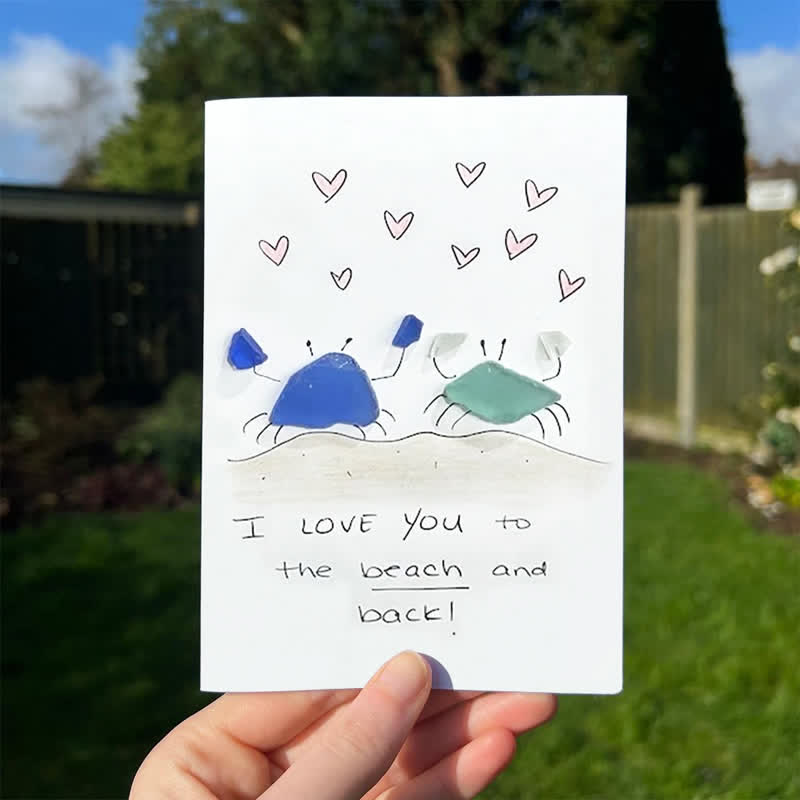 I LOVE YOU to
the beach and
back!